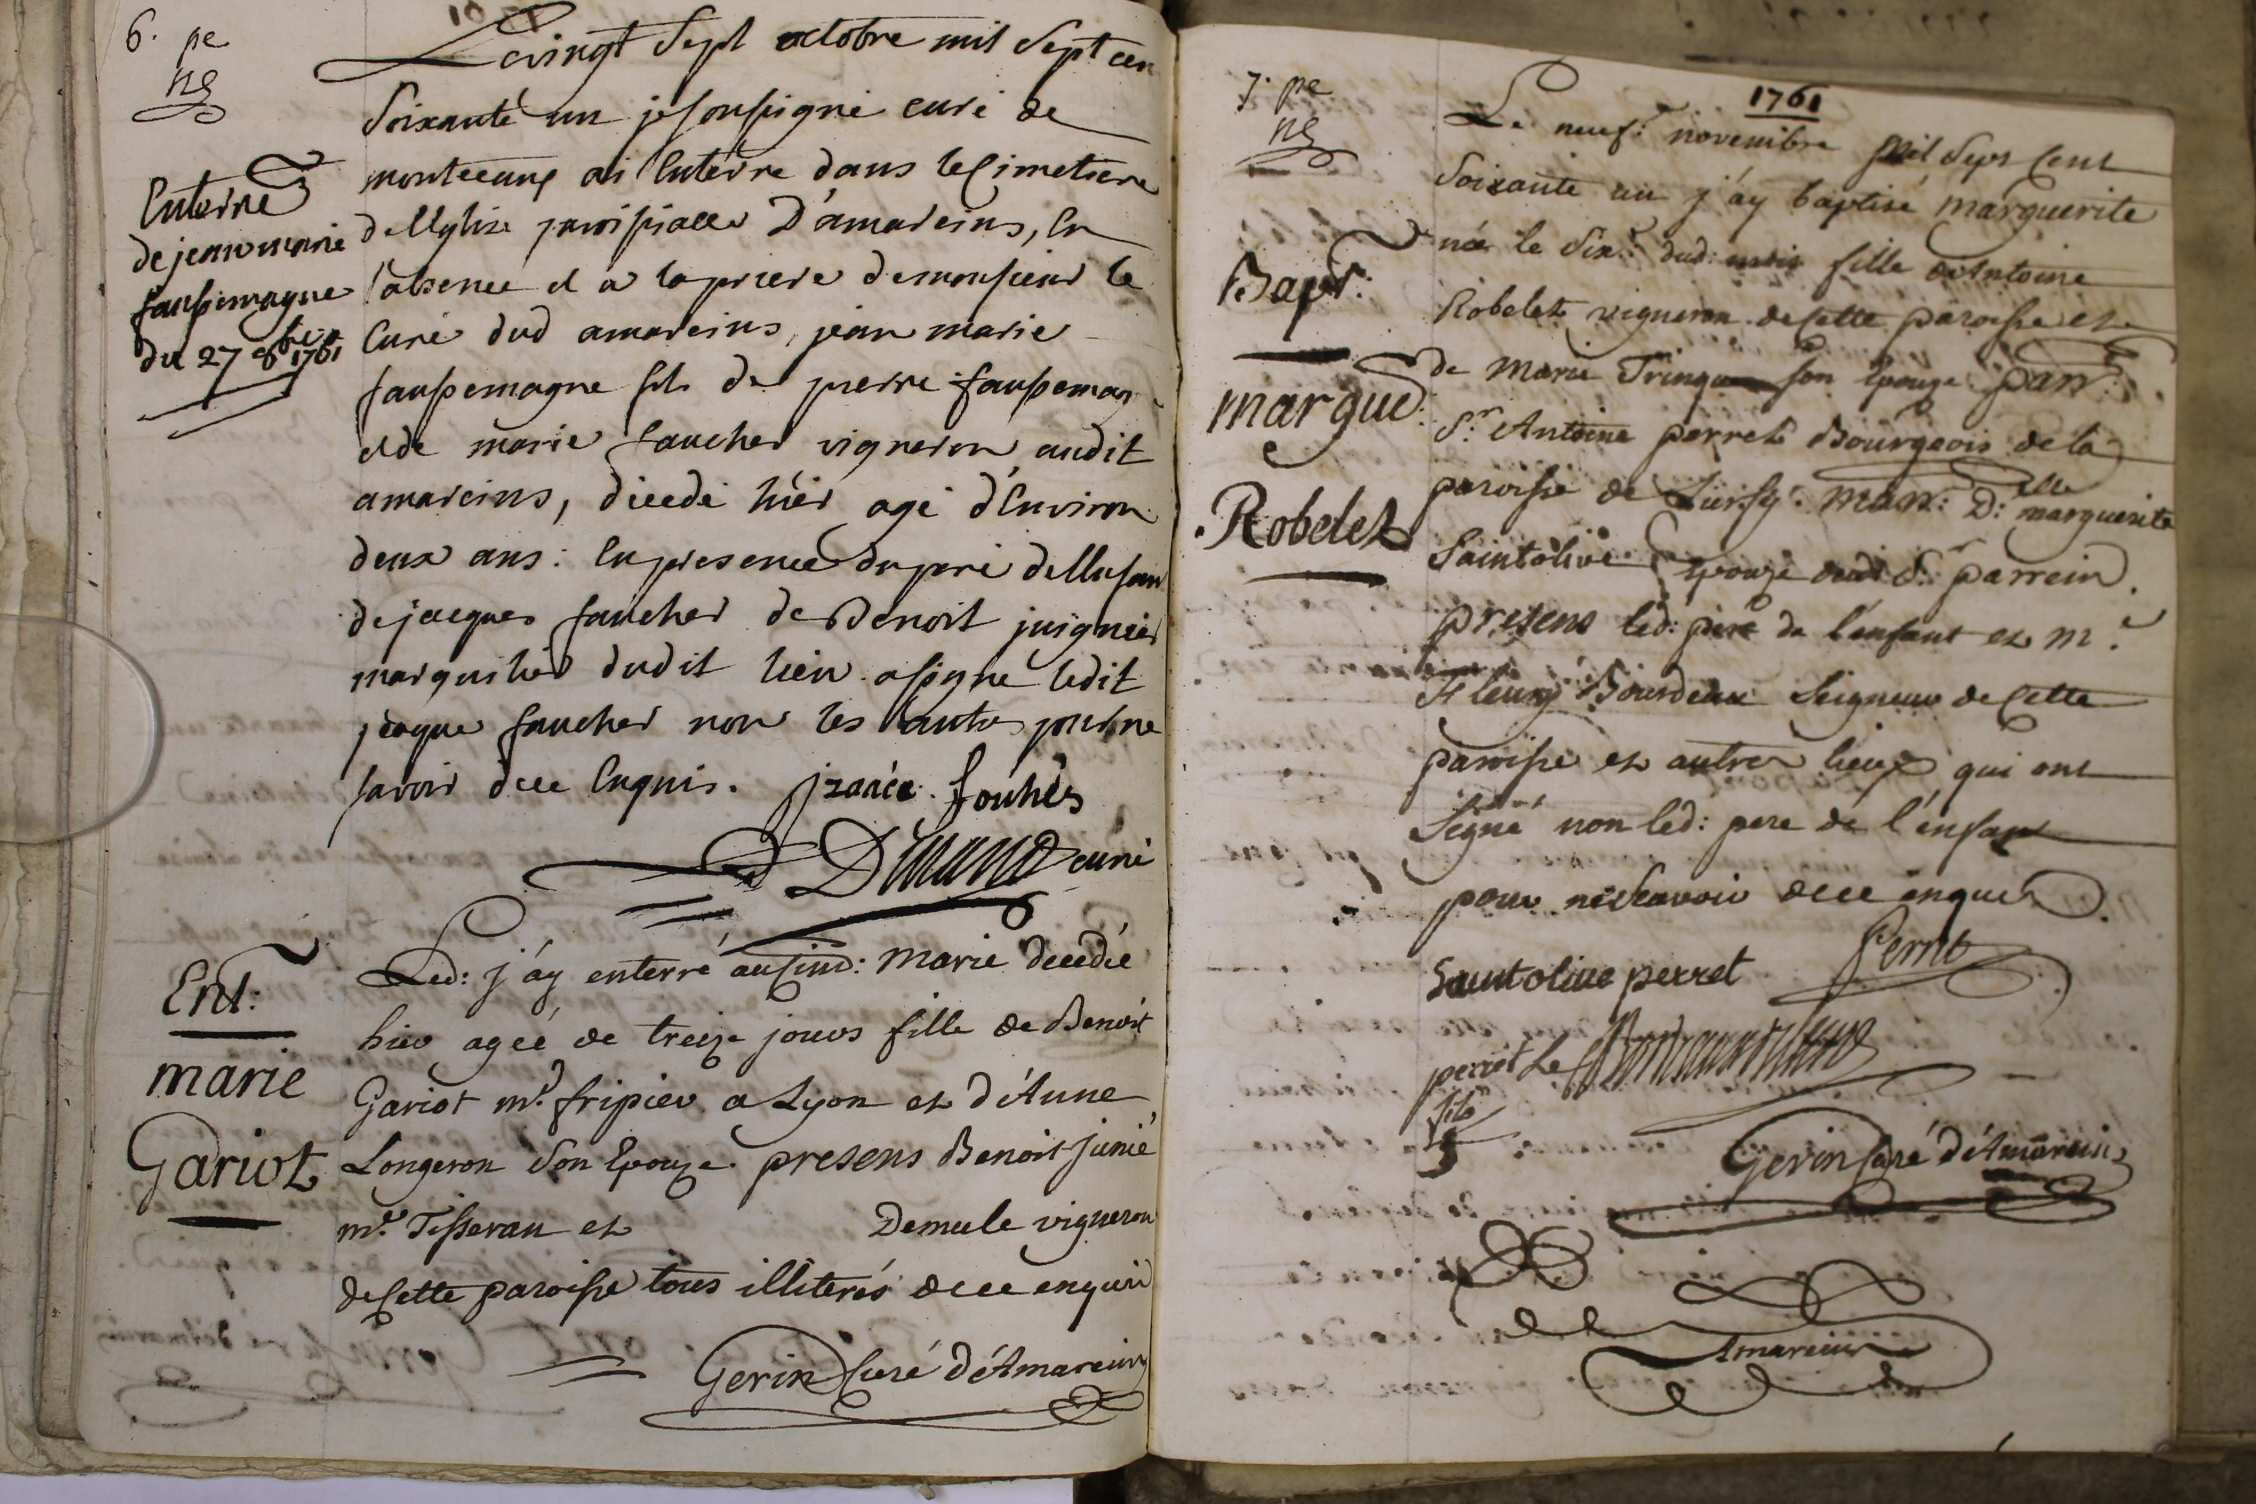 6. pe
Le vingt sept octobre mil sept cen
soixante un je soussigné curé de
montceaux ai enterre dans le cimetiere
de l'eglise paroissialle d'amareins, en
l'absence et a la priere de monsieur le
curé dud amareins, jean marie
faussemagne fils de pierre faussemag
et de marie faucher vigneron audit
amareins, décedé hier agé d'environ
deux ans: en presence du pere de l'enfan
de jacques faucher de Benoit juignier
marguilier dudit lieu a signé ledit
jacque faucher non les autres pour ne
savoir de ce enquis. fouhès
curé
Enterre
de jean marie
faussemagne
du 27 8bre 1761
Led: j'ay enterré au cimet: Marie decedée
hier agée de treize jours fille de Benoit
Gariot md. fripier a Lyon et d'Anne
Longeron son Epouze. presens Benoit junié
me. Tisseran et Demule vigneron
de cette paroisse tous illiterés de ce enquis
Gerin curé d'Amareins
Ent:
marie
Gariot
7. pe
1761
Le neuf. novembre mil sept cent
soixante un j'ay baptisé marguerite
née le six. dud: mois fille d'Antoine
Robelet vigneron de cette paroisse et
de Marie Trinque son Epouze parr:
Sr. Antoine perret Bourgeois de la
paroisse de Lurcy. marr: Delle marguerite
Saintolive Epouze dud Sr. parrein.
presens led: pere de l'enfant et Me.
Fleury Bourdeau Seigneur de cette
paroisse et autres lieux qui ont
signé non led: pere de l'enfant
pour ne scavoir de ce enquis.
Saintolive perret Perret
perret le
fils
Gerin curé d'Amareins
Amareins
Bapt:
margue
Robelet